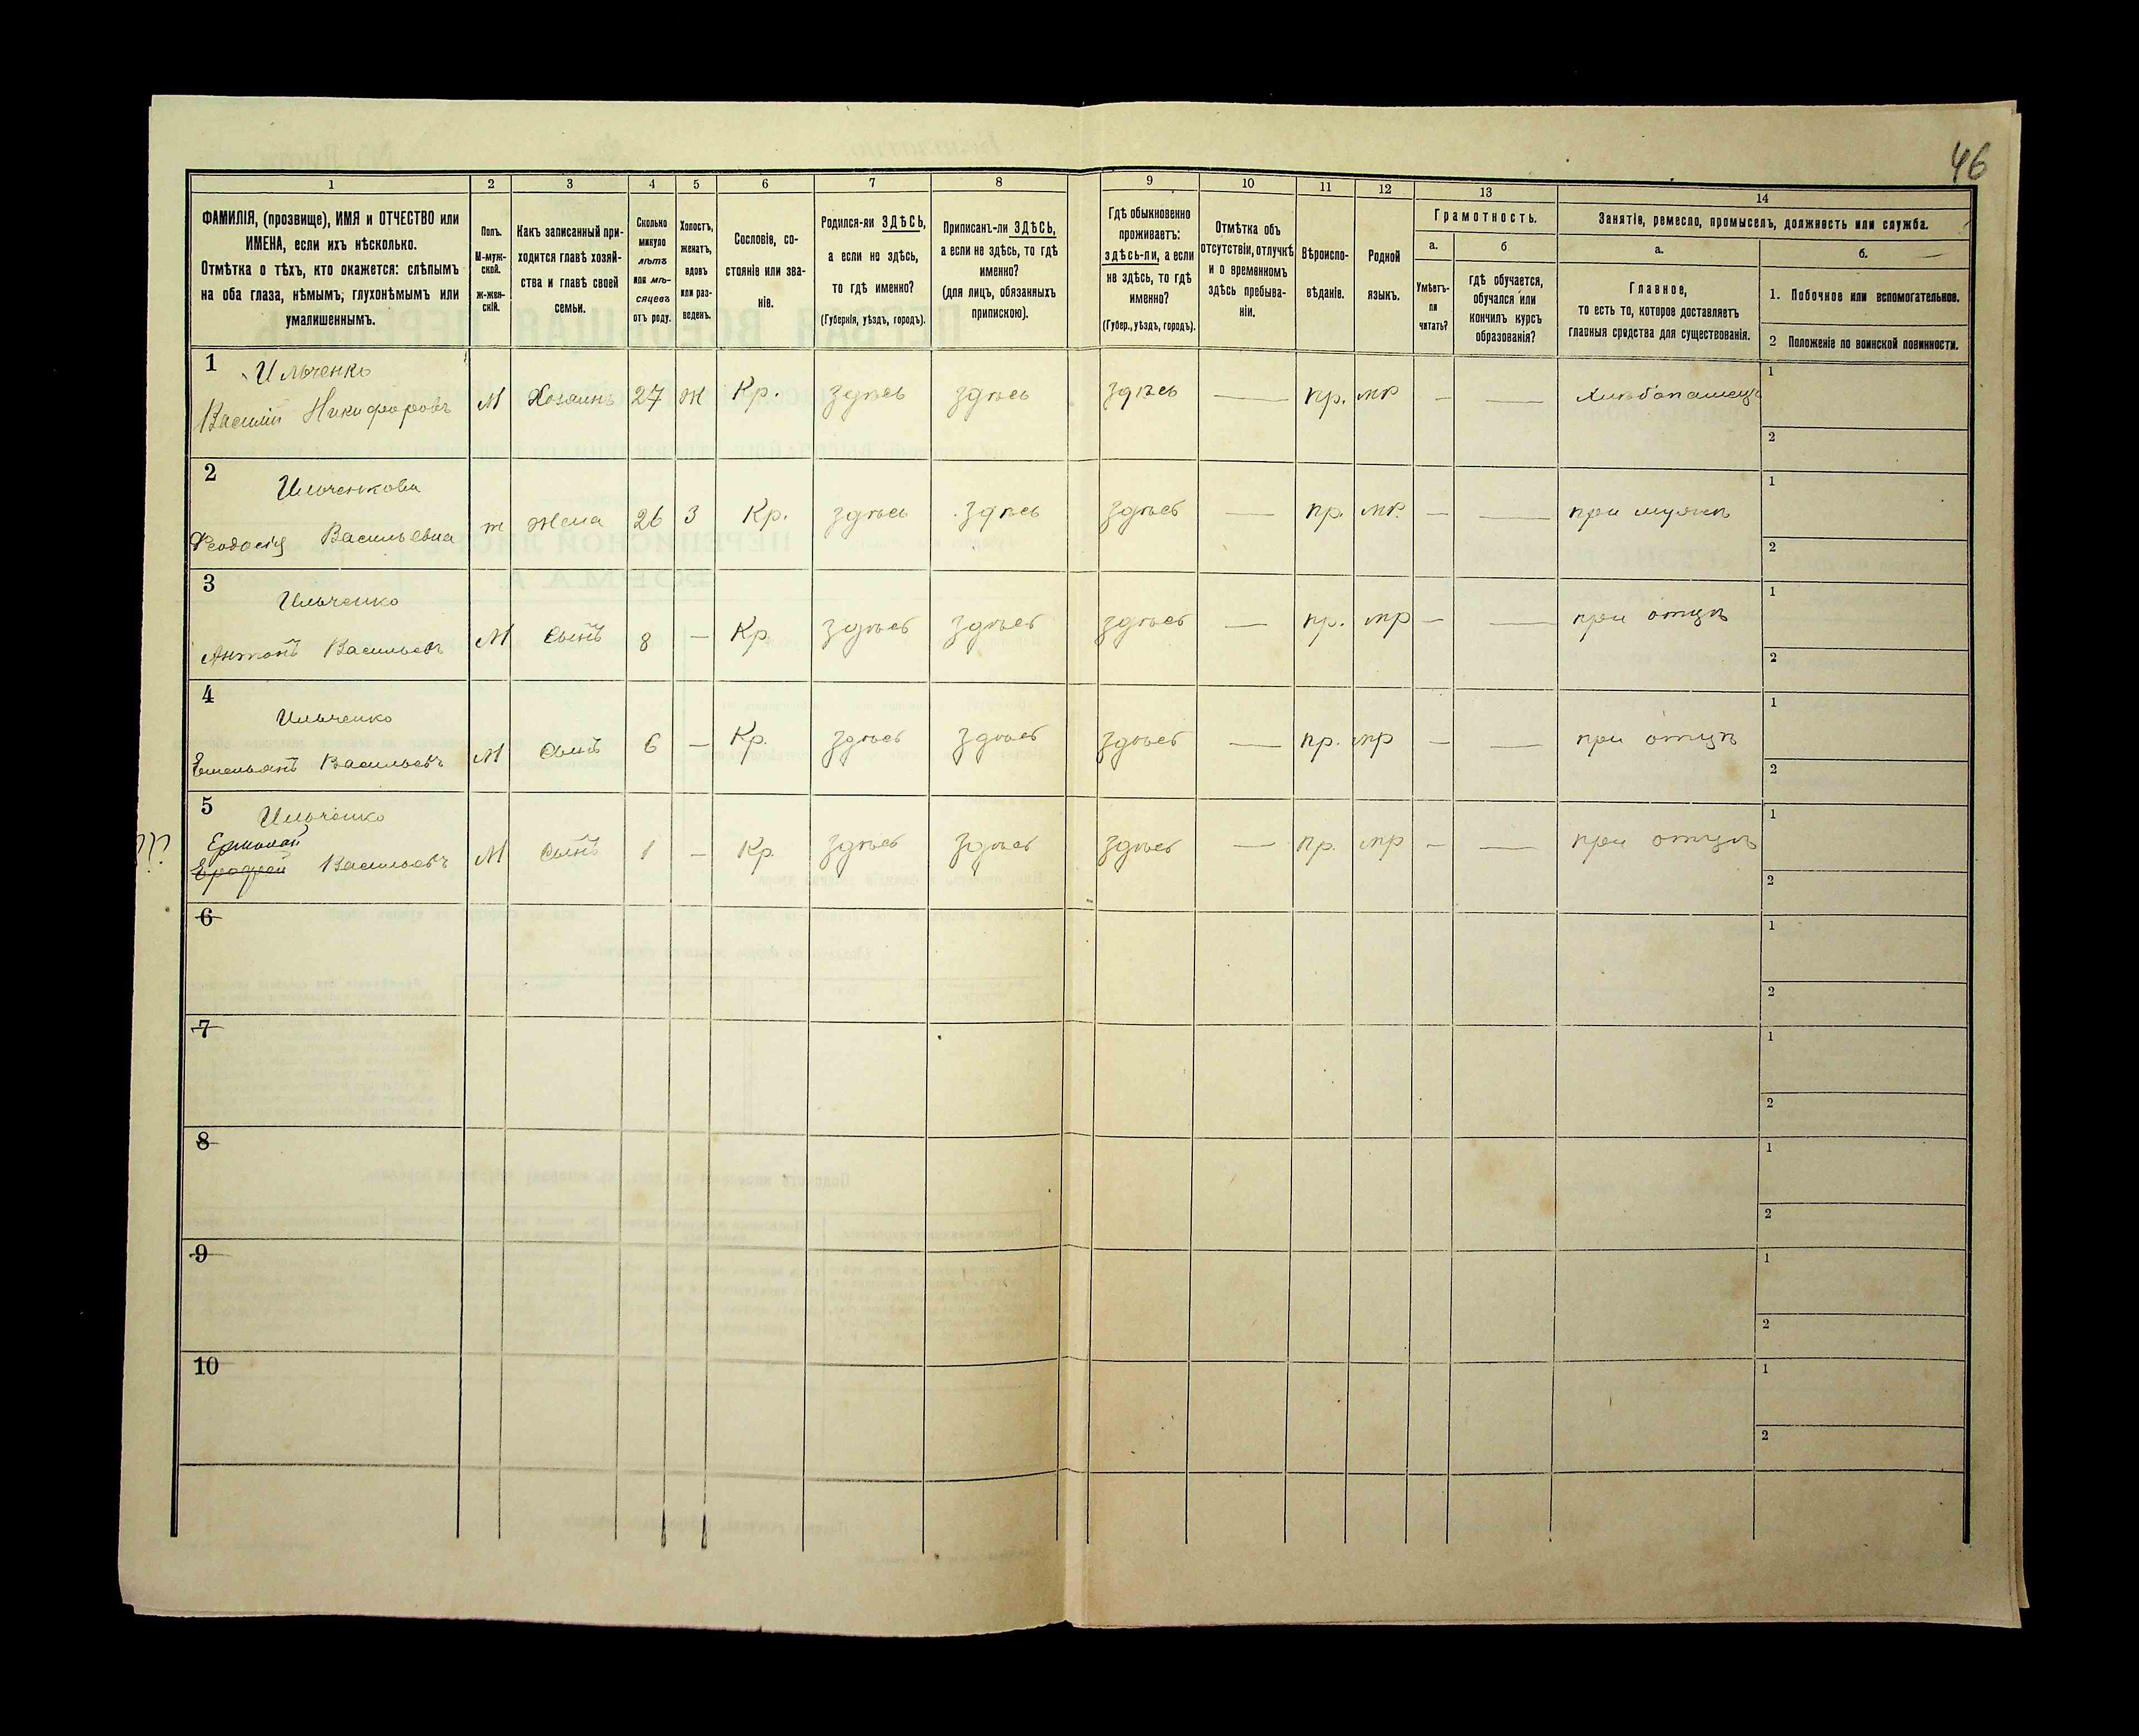 46
1 2 3 4 5 6 7 8 9 10 11 12 13 14
ФАМИЛІЯ, (прозвище), ИМЯ и ОТЧЕСТВО или
ИМЕНА, если ихъ нѣсколько.
Отмѣтка о тѣхъ, кто окажется: слѣпымъ
на оба глаза, нѣмымъ, глухонѣмымъ или
умалишеннымъ.
Полъ.
М-муж-
ской.
ж-жен-
скій.
Какъ записанный при-
ходится главѣ хозяй-
ства и главѣ своей
семьи.
Сколько
минуло
лѣтъ
или мѣ-
сяцевъ
отъ роду.
Холостъ,
женатъ,
вдовъ
или раз-
веденъ.
Сословіе, со-
стояніе или зва-
ніе.
Родился-ли ЗДѢСЬ,
а если не здѣсь,
то гдѣ именно?
(Губернія, уѣздъ, городъ).
Приписанъ-ли ЗДѢСЬ,
а если не здѣсь, то гдѣ
именно?
(для лицъ, обязанныхъ
припискою).
Гдѣ обыкновенно
проживаетъ:
здѣсь-ли, а если
не здѣсь, то гдѣ
именно?
(Губер., уѣздъ, городъ).
Отмѣтка объ
отсутствіи, отлучкѣ
и о временномъ
здѣсь пребыва-
ніи.
Вѣроиспо-
вѣданіе.
Родной
языкъ.
Грамотность.
а.
Умѣетъ-
ли
читать?
б
гдѣ обучается,
обучался или
кончилъ курсъ
образованія?
Занятіе, ремесло, промыселъ, должность или служба.
а.
Главное,
то есть то, которое доставляетъ
главныя средства для существованія.
б.
1. Побочное или вспомогательное.
2 Положеніе по воинской повинности.
1 Ильченко
Василій Никифоровъ М Хозяинъ 27 Ж Кр. здѣсь здѣсь здѣсь — пр. мр — — Хлѣбопашецъ
1
2
2 Ильченкова
Феодосія Васильевна ж жена 26 З Кр. здѣсь здѣсь здѣсь — пр. мр. — — при мужѣ
1
2
3 Ильченко
Антонъ Васильевъ М сынъ 8 — Кр. здѣсь здѣсь здѣсь — пр. мр — — при отцѣ
1
2
4 Ильченко
Емельянъ Васильевъ М сынъ 6 — Кр. здѣсь здѣсь здѣсь — пр. мр — — при отцѣ
1
2
5 Ильченко
Ермолай
Васильевъ М сынъ 1 — Кр. здѣсь здѣсь здѣсь — пр. мр — — при отцѣ
1
2
6
1
2
7
1
2
8
1
2
9
1
2
10
1
2